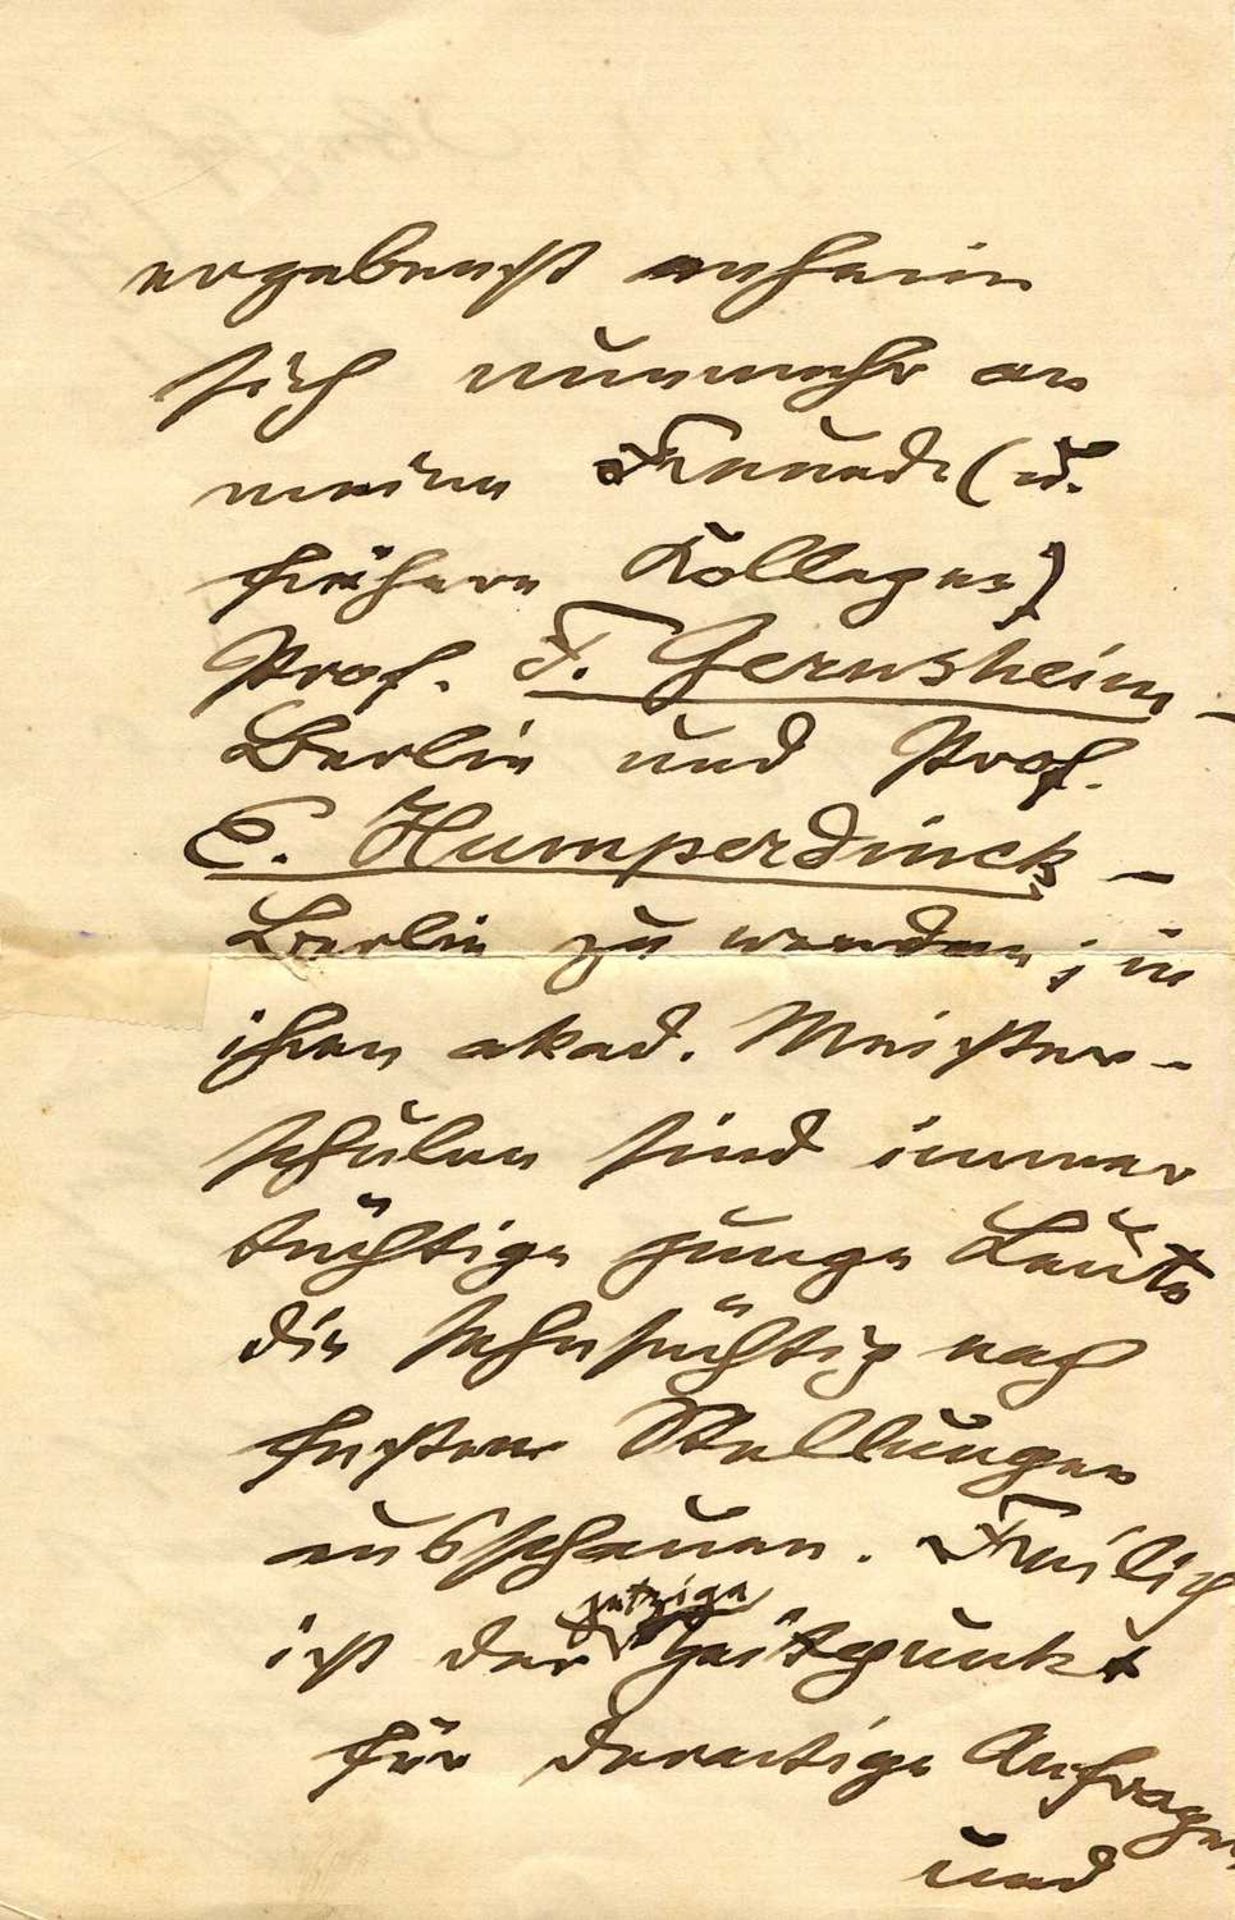 ergebenst anheim
sich nunmehr an
meine Freunde (u.
frühere Kollegen)
Prof. F. Gernsheim –
Berlin und Prof.
E. Humperdinck –
Berlin zu wenden; in
ihren akad. Meister-
schulen sind immer
tüchtige junge Leute
die sehnsüchtig nach
festen Stellungen
ausschauen. Freilich
ist der jetzige Zeitpunkt
für derartige Anfragen
und